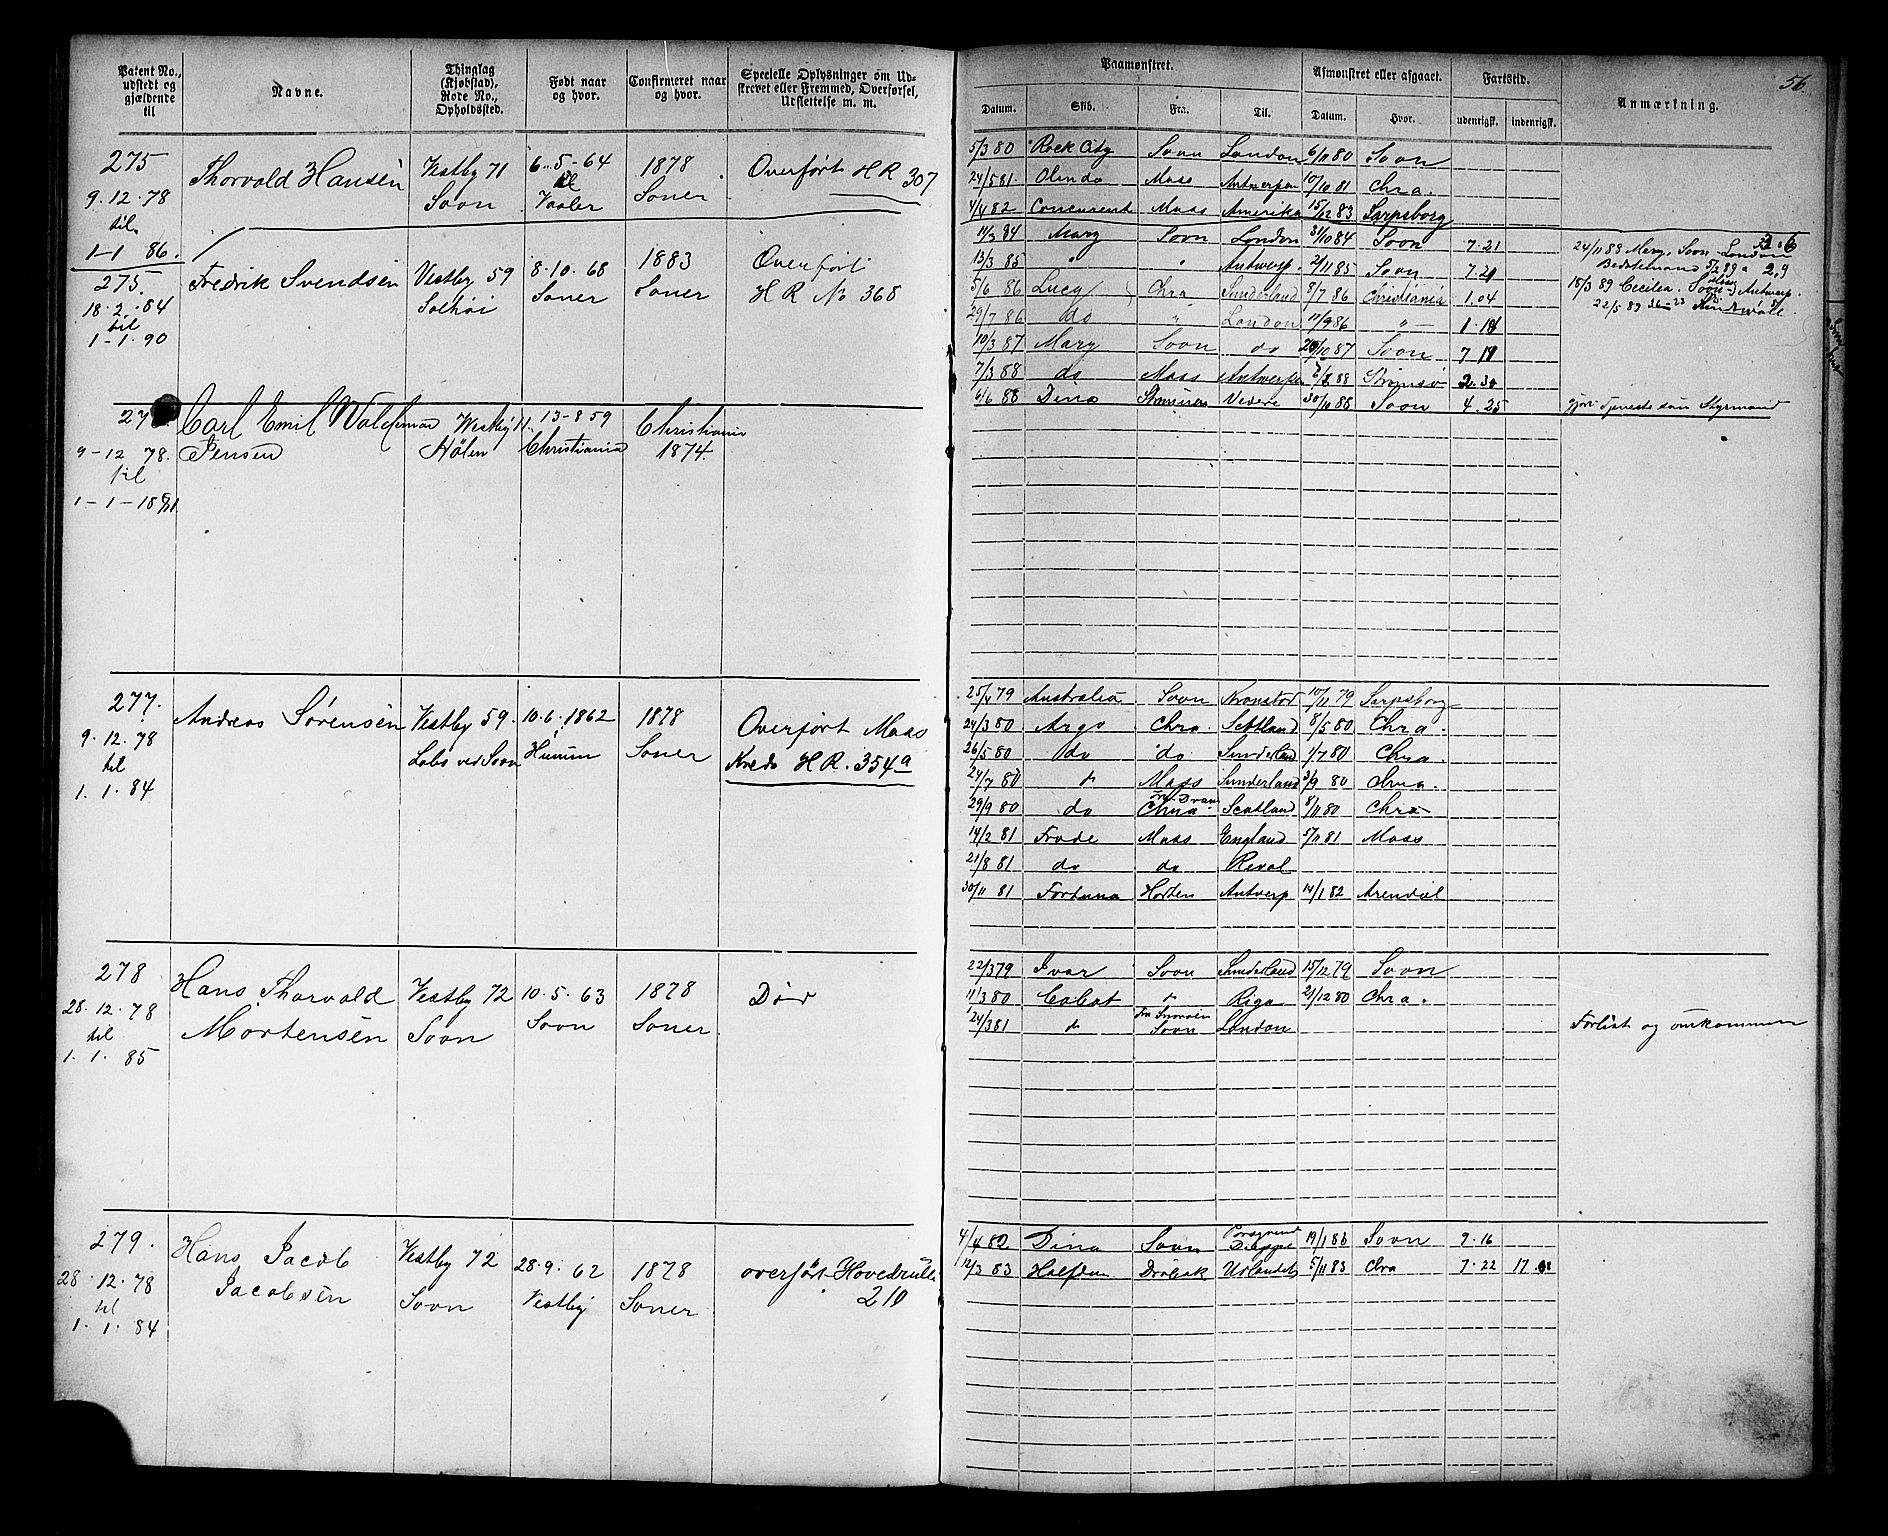 56
Patent No., udstedt og gjældende til
Navne.
Thinglag (Kjøbstad), Rore No., Opholdssted.
Født naar og hvor.
Confirmeret naar og hvor.
Specielle Oplysninger om Udskrevet eller Fremmed, Overførsel, Udslettelse m. m.
Paamønstret.
Afmønstret eller afgaaet.
Fartstid.
Anmærkning.
Datum. Skib. Fra. Til. Datum. Hvor. udenrigsk. indenrigsk.
275
9.12.78
til
1-1 86.
Thorvald Hansen
Vestby 71
Soon
6-5-64
Vaaler
1878
Soner
Overført HR 307
5/3 80 Rock City Soon London 6/11 80 Soon
24/5 81 Olinda Moss Antwerpen 10/10 81 Chra.
4/4 82 Concurrent Moss Amerika 15/12 83 Sarpsborg
275.
18.2.84
til
1-1.90
Fredrik Svendsen
Vestby 59
Solhøi
8.10.68
Soner
1883
Soner
Overført
HR No 368
11/3 84 Mary Soon London 31/10 84 Soon 7.21
13/3 85 " " Antwerp. 2/11 85 Soon
5/6 86 Lucy Chra Sunderland 8/7 86 Christiania 1.04
29/7 86 do " London 17/9 86 " 1.18
10/3 87 Mary Soon do 28/10 87 Soon
7/3 88 do Moss Antwerpen
6/6 88 Dina Vedere 30/10 88 Soon 4.25
24/11 88 Mary, Soon - London
Bedstemand 5/2 89 2.9
18/3 89 Cecilia. Soon - Antwerp.
gjort Tjeneste som Styrmand
9-12 78.
til
Carl Emil Waldemar
Jensen
Vestby 11.
Hølen
13-8 59
Christiania
Christiania
1874.
277.
9.12.78
til
1.1.84
Andreas Sørensen
Vestby 59.
Labo ved Soon
10.6.1862
Hurum
1878
Soner
Overført Moss
Kreds HR. 354a
25/4 79 Australia Soon Kronstad 10/11 79 Sarpsborg
24/3 80 Argo Chra. Scotland 8/5 80 Chra.
26/5 80 do do Sunderland 1/7 80 Chra.
24/7 80 " Moss Sunderland 3/9 80 Chra.
29/9 80 do Chra Scotland 8/11 80 Chra
14/2 81 Frode Moss England 5/11 81 Moss
21/8 81 do do Reval
30/11 81 Fortuna Horten Antwerp 14/1 82 Arendal
278
28.12.78
til
1.1.85
Hans Thorvald
Mortensen
Vestby 72
Soon
10.5.63
Soon
1878
Soner
Død
22/3 79 Ivar Soon Sunderland 15/12 79 Soon
11/3 80 Cabot " Riga 21/12 80 Chra.
24/3 81 " Soon London
Forlist og omkommen
279.
28.12.78
til
1.1.84
Hans Jacob
Jacobsen
Vestby 72
Soon
28.9.62
Vestby
1878
Soner
overført Hovedrulle
210
4/4 82 Dina Soon Dieppe 19/1 83 Soon 9.16
12/3 83 Halfdan Drøbak Udlandet 5/11 83 Chra 7.22